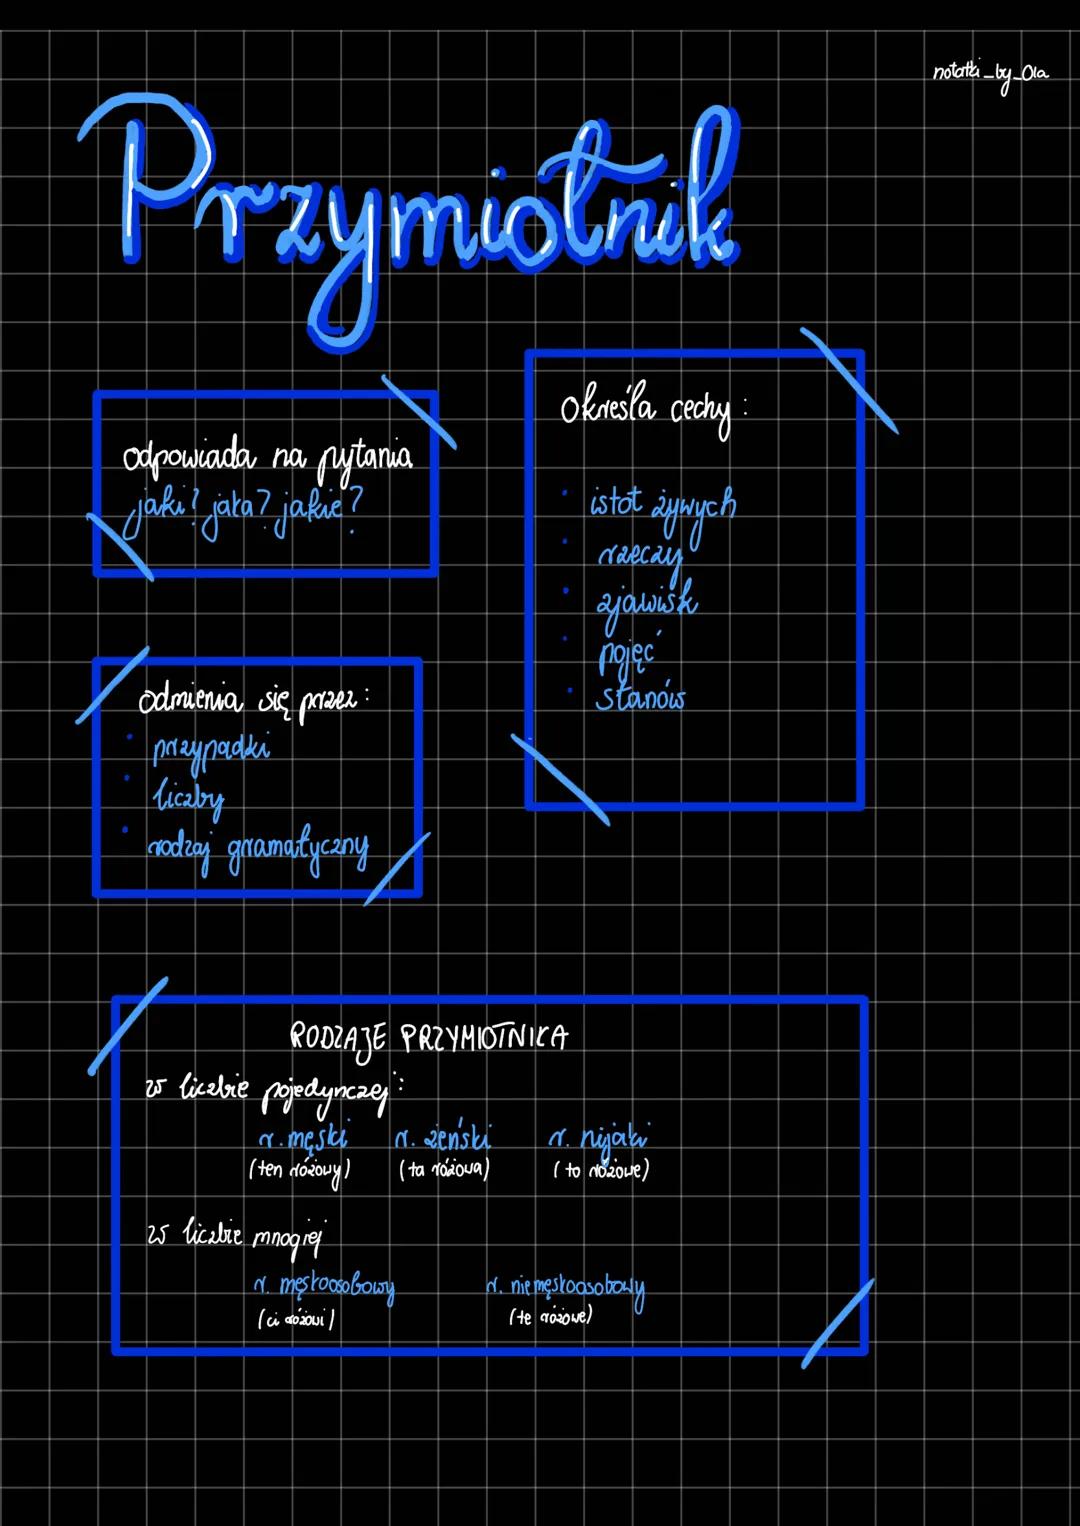 notatki_by_Ola
Przymiotnik
odpowiada na pytania
jaki? jaka? jakie?
określa cechy:
• istot żywych
• rzeczy
• zjawisk
• pojęć
• stanów
odmienia się przez:
• przypadki
• liczby
• rodzaj gramatyczny
RODZAJE PRZYMIOTNIKA
w liczbie pojedynczej:
r. męski r. żeński r. nijaki
(ten różowy) (ta różowa) (to różowe)
w liczbie mnogiej
r. męskoosobowy r. niemęskoosobowy
(ci różowi) (te różowe)